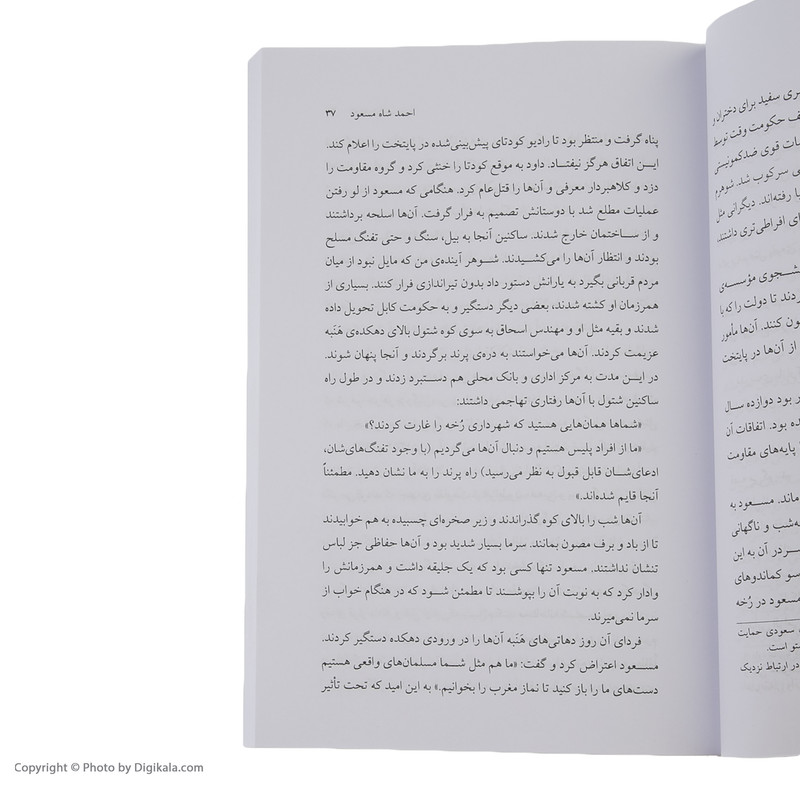 احمد شاه مسعود ۳۷
پناه گرفت و منتظر بود تا رادیو کودتای پیش‌بینی‌شده در پایتخت را اعلام کند.
این اتفاق هرگز نیفتاد. داود به موقع کودتا را خنثی کرد و گروه مقاومت را
دزد و کلاهبردار معرفی و آن‌ها را قتل‌عام کرد. هنگامی که مسعود از لو رفتن
عملیات مطلع شد با دوستانش تصمیم به فرار گرفت. آن‌ها اسلحه برداشتند
و از ساختمان خارج شدند. ساکنین آنجا به بیل، سنگ و حتی تفنگ مسلح
بودند و انتظار آن‌ها را می‌کشیدند. شوهر آینده‌ی من که مایل نبود از میان
مردم قربانی بگیرد به یارانش دستور داد بدون تیراندازی فرار کنند. بسیاری از
همرزمان او کشته شدند، بعضی دیگر دستگیر و به حکومت کابل تحویل داده
شدند و بقیه مثل او و مهندس اسحاق به سوی کوه شتول بالای دهکده‌ی هَنَبه
عزیمت کردند. آن‌ها می‌خواستند به دره‌ی پرند برگردند و آنجا پنهان شوند.
در این مدت به مرکز اداری و بانک محلی هم دستبرد زدند و در طول راه
ساکنین شتول با آن‌ها رفتاری تهاجمی داشتند:
«شماها همان‌هایی هستید که شهرداری رُخه را غارت کردند؟»
«ما از افراد پلیس هستیم و دنبال آن‌ها می‌گردیم (با وجود تفنگ‌های‌شان،
ادعای‌شان قابل قبول به نظر می‌رسید) راه پرند را به ما نشان دهید. مطمئناً
آنجا قایم شده‌اند.»
آن‌ها شب را بالای کوه گذراندند و زیر صخره‌ای چسبیده به هم خوابیدند
تا از باد و برف مصون بمانند. سرما بسیار شدید بود و آن‌ها حفاظی جز لباس
تنشان نداشتند. مسعود تنها کسی بود که یک جلیقه داشت و همرزمانش را
وادار کرد که به نوبت آن را بپوشند تا مطمئن شود که در هنگام خواب از
سرما نمی‌میرند.
فردای آن روز دهاتی‌های هَنَبه آن‌ها را در ورودی دهکده دستگیر کردند.
مسعود اعتراض کرد و گفت: «ما هم مثل شما مسلمان‌های واقعی هستیم
دست‌های ما را باز کنید تا نماز مغرب را بخوانیم.» به این امید که تحت تأثیر
سفید برای دختران و
حکومت وقت توسط
قوی ضدکمونیستی
سرکوب شد. شوهرم
رفته‌اند. دیگرانی مثل
افراطی‌تری داشتند،
مؤسسه‌ی
تا دولت را که با
کنند. آن‌ها مأمور
از آن‌ها در پایتخت
بود دوازده سال
بود. اتفاقات آن
پایه‌های مقاومت
مسعود به
و ناگهانی
در آن به این
کماندوهای
مسعود در رُخه
سعودی حمایت
است.
در ارتباط نزدیک
Copyright © Photo by Digikala.com